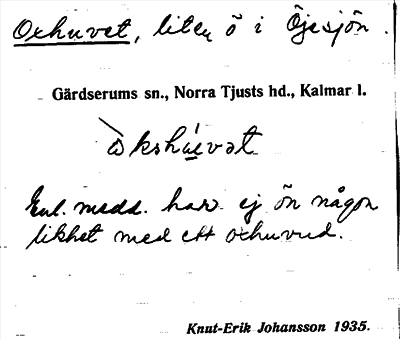 Oxhuvet, liten ö i Öjesjön.
Gärdserums sn., Norra Tjusts hd., Kalmar l.
Enl. medd. har ej ön någon
likhet med ett oxhuvud.
Knut-Erik Johansson 1935.